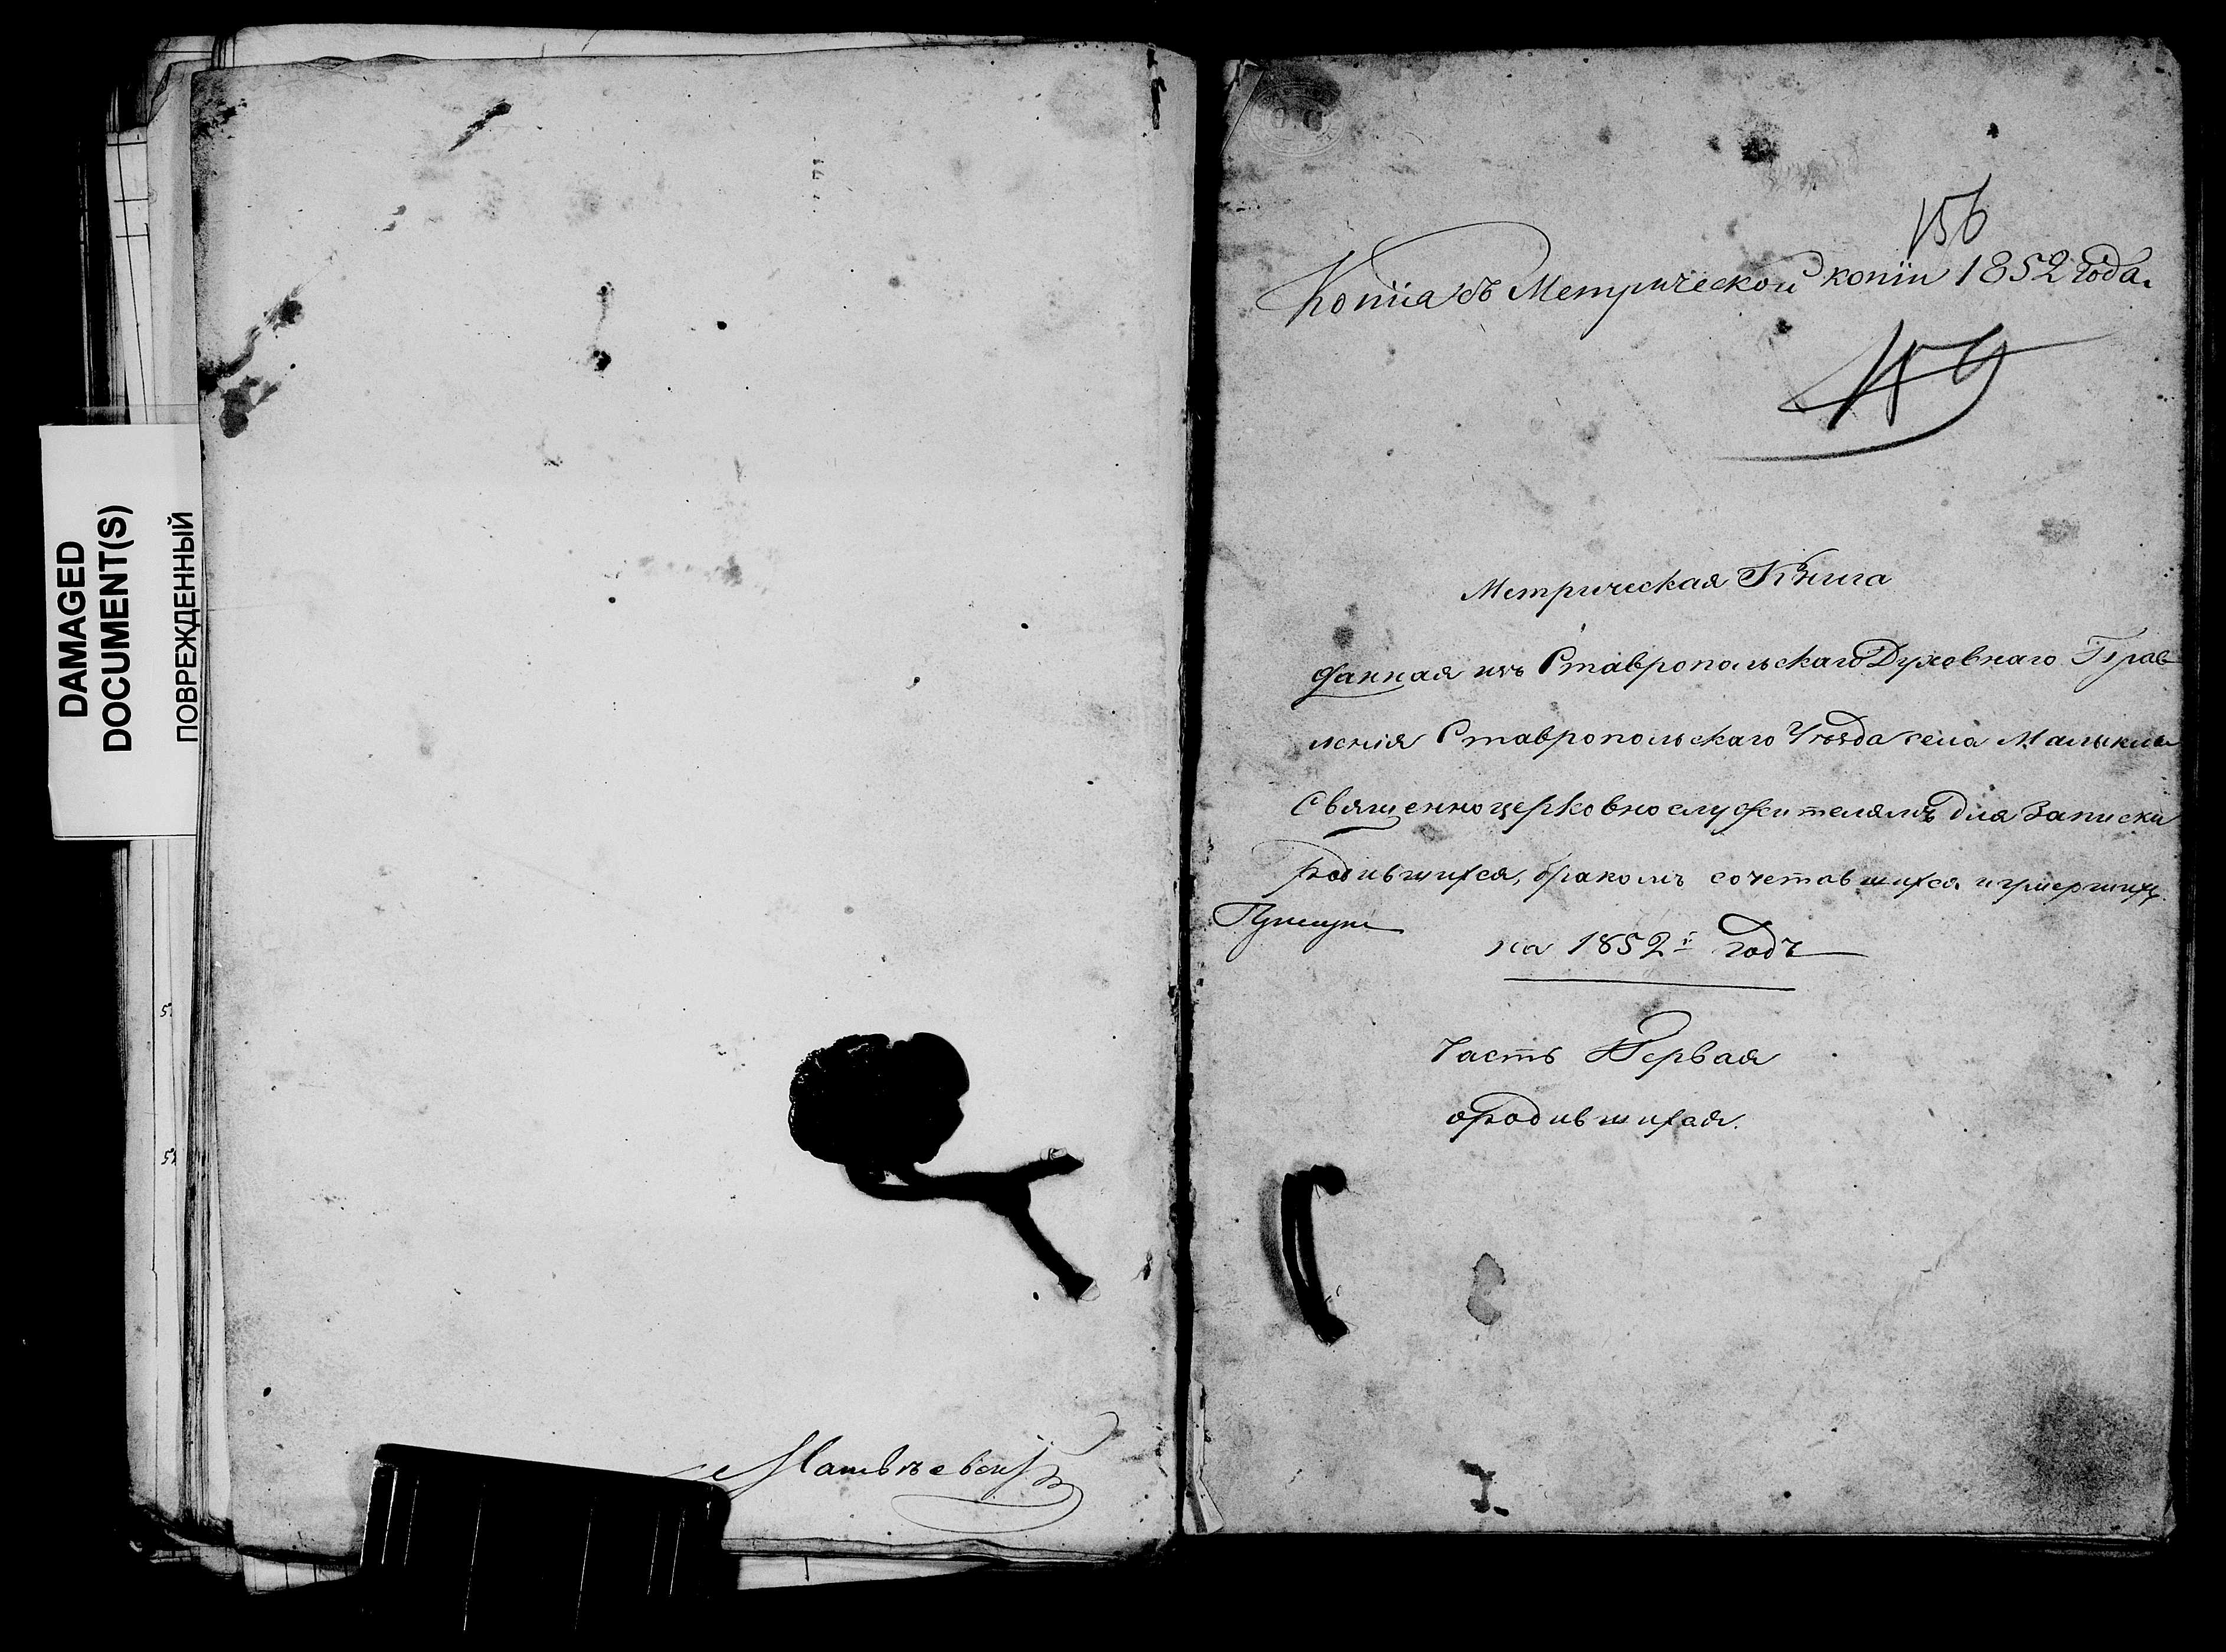 DAMAGED
DOCUMENT(S)
ПОВРЕЖДЕННЫЙ
156
Копiя съ Метрической копiи 1852 года.
Метрическая Книга
данная изъ Ставропольскаго Духовнаго Прав
ленiя Ставропольскаго Уѣзда села
Священноцерковнослужителямъ для записки
родившихся, бракомъ сочетавшихся и умершихъ
на 1852й годъ
Часть Первая
о родившихся.